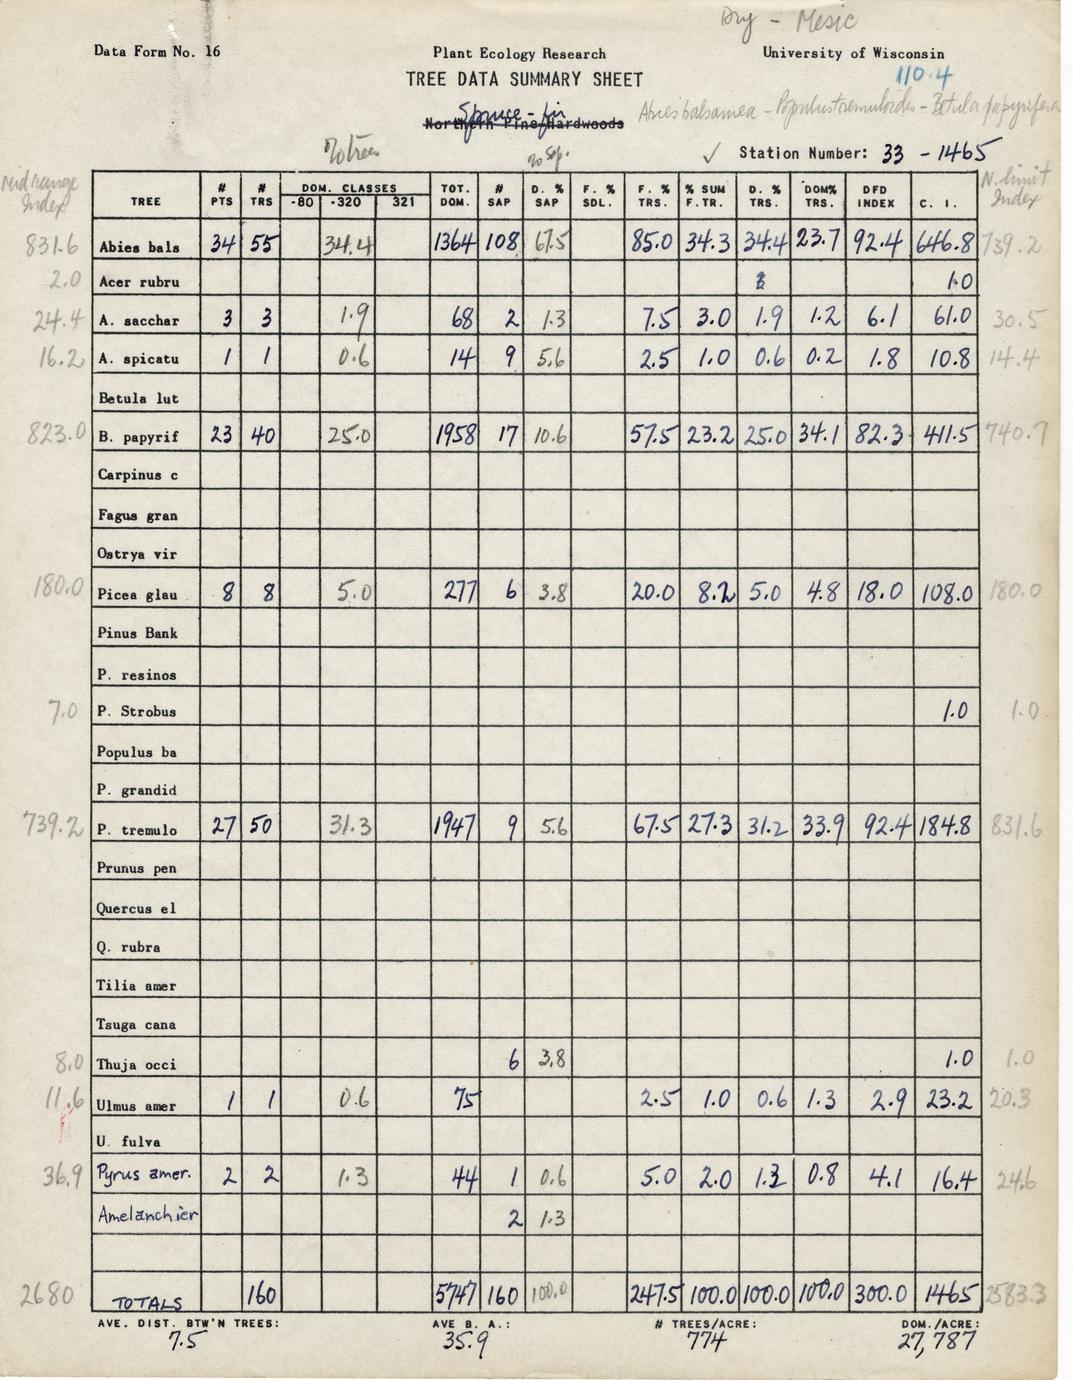 Dry - Mesic
Data Form No. 16 Plant Ecology Research University of Wisconsin
TREE DATA SUMMARY SHEET 110.4
Spruce-fir
Northern Pine Hardwoods Abies balsamea - Populus tremuloides - Betula papyrifera
% trees % sap. ✓ Station Number: 33 - 1465
Midrange Index TREE # PTS # TRS DOM. CLASSES -80 -320 321 TOT. DOM. # SAP D. % SAP F. % SDL. F. % TRS. % SUM F.TR. D. % TRS. DOM% TRS. DFD INDEX C. I. N. limit Index
831.6 Abies bals 34 55 34.4 1364 108 67.5 85.0 34.3 34.4 23.7 92.4 646.8 739.2
2.0 Acer rubru 1.0
24.4 A. sacchar 3 3 1.9 68 2 1.3 7.5 3.0 1.9 1.2 6.1 61.0 30.5
16.2 A. spicatu 1 1 0.6 14 9 5.6 2.5 1.0 0.6 0.2 1.8 10.8 14.4
Betula lut
823.0 B. papyrif 23 40 25.0 1958 17 10.6 57.5 23.2 25.0 34.1 82.3 411.5 740.7
Carpinus c
Fagus gran
Ostrya vir
180.0 Picea glau 8 8 5.0 277 6 3.8 20.0 8.2 5.0 4.8 18.0 108.0 180.0
Pinus Bank
P. resinos
7.0 P. Strobus 1.0 1.0
Populus ba
P. grandid
739.2 P. tremulo 27 50 31.3 1947 9 5.6 67.5 27.3 31.2 33.9 92.4 184.8 831.6
Prunus pen
Quercus el
Q. rubra
Tilia amer
Tsuga cana
8.0 Thuja occi 6 3.8 1.0 1.0
11.6 Ulmus amer 1 1 0.6 75 2.5 1.0 0.6 1.3 2.9 23.2 20.3
U. fulva
36.9 Pyrus amer. 2 2 1.3 44 1 0.6 5.0 2.0 1.2 0.8 4.1 16.4 24.6
Amelanchier 2 1.3
2680 TOTALS 160 5747 160 100.0 247.5 100.0 100.0 100.0 300.0 1465 2583.3
AVE. DIST. BTW'N TREES: AVE B. A.: # TREES/ACRE: DOM./ACRE:
7.5 35.9 774 27,787